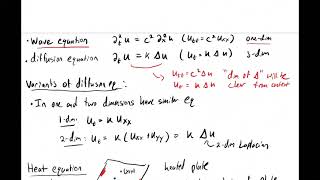 • Wave equation ∂ₜ²u = c² ∂ₓ²u (uₜₜ = c² uₓₓ) one-dim
• diffusion equation ∂ₜu = k Δu (uₜ = k Δu) 3-dim
uₜₜ = c² Δu "dim of Δ" will be
uₜ = k Δu clear from context
Variants of diffusion eq:
• In one and two dimensions have similar eq
1-dim: uₜ = k uₓₓ
2-dim: uₜ = k (uₓₓ + u_yy) = k Δu
2-dim Laplacian
Heat equation heated plate